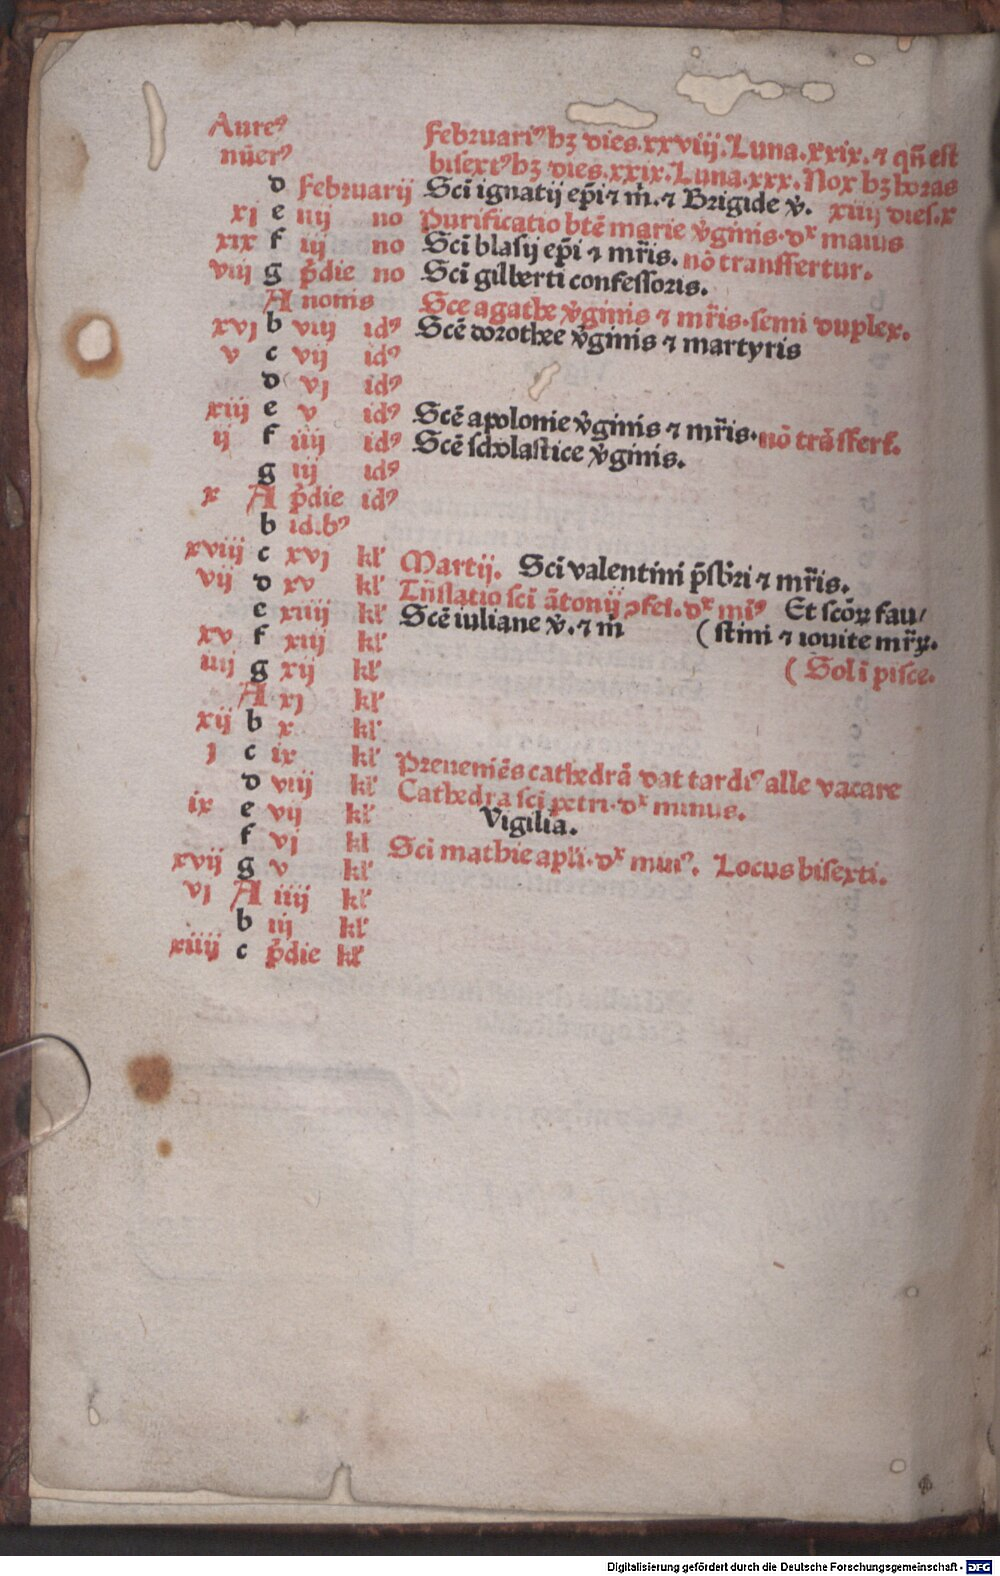 Aureꝰ Februariꝰ hꝫ dies.xxviij.Luna.xxix.⁊ qn̄ est
nūerꝰ bisextꝰ hꝫ dies.xxix.Luna.xxx.Nox hꝫ horas
d Februarij Sci̅ ignatij ep̄i ⁊ m̄.⁊ Brigide v̓. xiiij dies.x
xj e iiij no Purificatio btē marie v̓ginis.dx maius
xix f iij no Sci̅ blasij ep̄i ⁊ mr̄is. nō transfertur.
viij g p̓die no Sci̅ gilberti confessoris.
A nonis Sce agathe v̓ginis ⁊ mr̄is.semi duplex.
xvj b viij idꝰ Scē dorothee v̓ginis ⁊ martyris
v c vij idꝰ
d vj idꝰ
xiij e v idꝰ Scē apolonie v̓ginis ⁊ mr̄is.nō trāsfert.
ij f iiij idꝰ Scē scholastice v̓ginis.
g iij idꝰ
x A p̓die idꝰ
b id.bꝰ
xviij c xvj kl̓ Martij. Sci̅ valentini p̄sb̓ri ⁊ mr̄is.
vij d xv kl̓ Trn̄slatio sci̅ ātonij ꝯfes.dx miꝰ Et scōꝝ fau/
e xiiij kl̓ Scē iuliane v̓.⁊ m̄ (stini ⁊ iouite mr̄ꝝ.
xv f xiij kl̓
iiij g xij kl̓ (Sol i̅ pisce.
A xj kl̓
xij b x kl̓
j c ix kl̓ Preueniēs cathedrā dat tardiꝰ alle vacare
d viij kl̓ Cathedra sci̅ petri.dx minus.
ix e vij kl̓ Vigilia.
f vj kl Sci mathie apl̓i.dx miuꝰ. Locus bisexti.
xvij g v kl̓
vj A iiij kl̓
b iij kl̓
xiiij c p̓die kl̓
Digitalisierung gefördert durch die Deutsche Forschungsgemeinschaft - DFG